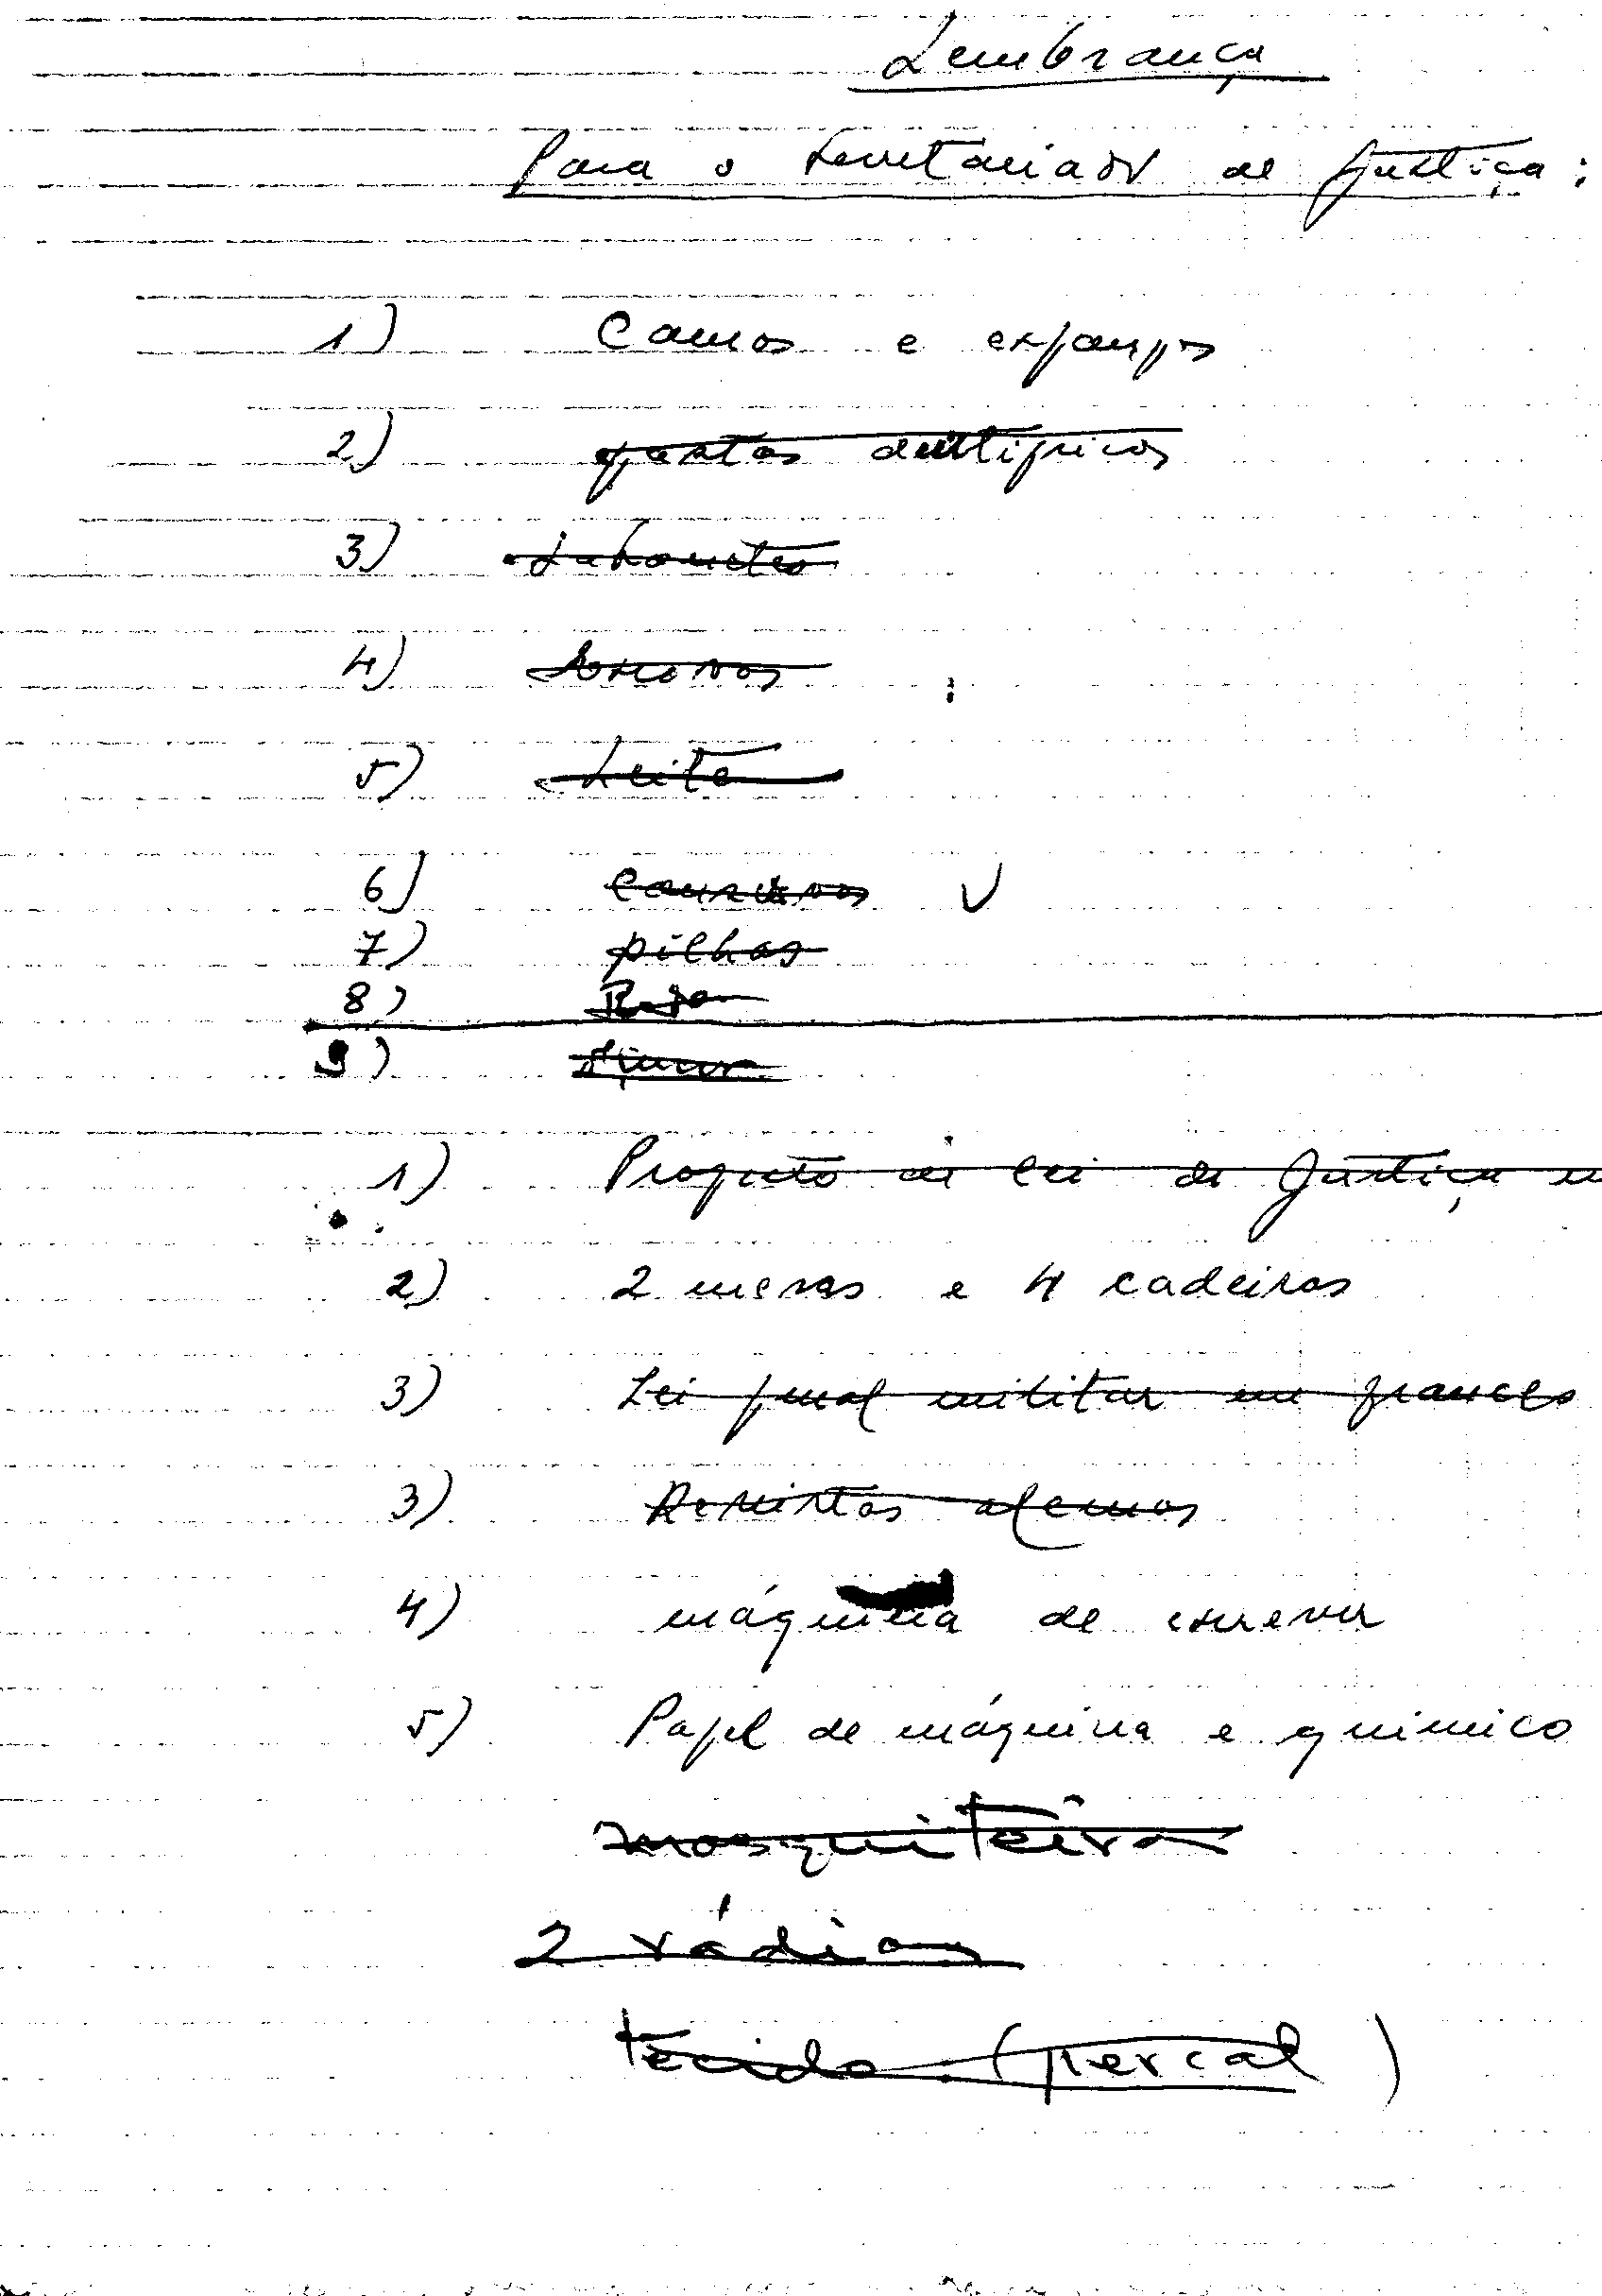 Lembrança
Para o Secretariado de Justiça:
1) Camas e
2) pastas dentífricas
3) Sabonetes
4)
5) Leite
6)
7) pilhas
8)
9) Açucar
1) Projecto de lei de Justiça
2) 2 mesas e 4 cadeiras
3) Lei penal militar em francês
3) Revistas alemãs
4) máquina de escrever
5) Papel de máquina e químico
mosquiteiro
2 rádios
tecido (percal)